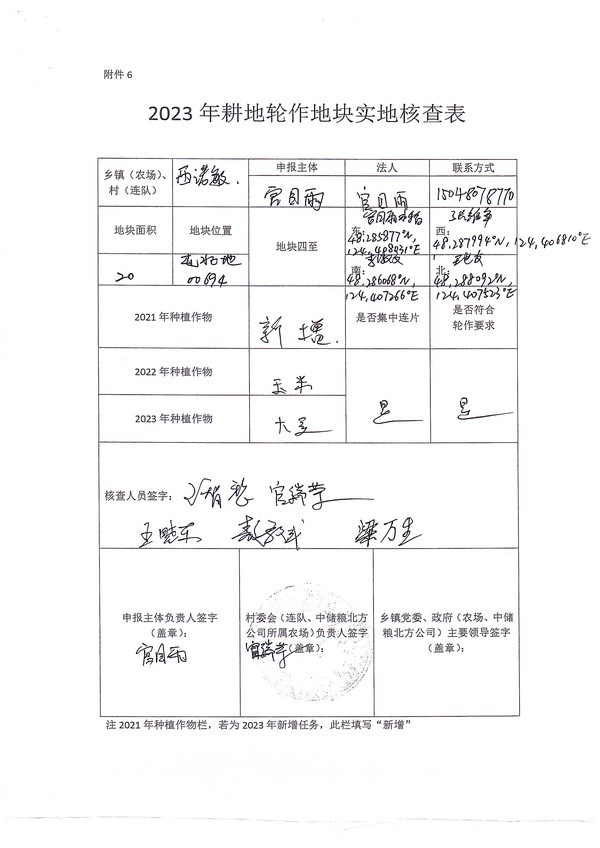 附件 6
2023 年耕地轮作地块实地核查表
乡镇（农场）、
村（连队）
西诺敏.
申报主体
法人
联系方式
宫目雨
宫目雨
15048078770
地块面积
地块位置
地块四至
东：
48.285877°N,
124.408031°E
西：
48.287994°N, 124.406810°E
20
00694
南：
48.286068°N,
124.407266°E
北：
48.288092°N,
124.407523°E
2021 年种植作物
新增.
是否集中连片
是否符合
轮作要求
2022 年种植作物
玉米
2023 年种植作物
大豆
是
是
核查人员签字：
宫瑞芹
梁万生
申报主体负责人签字
（盖章）：
宫目雨
村委会（连队、中储粮北方
公司所属农场）负责人签字
（盖章）：
宫瑞芹
乡镇党委、政府（农场、中储
粮北方公司）主要领导签字
（盖章）：
注 2021 年种植作物栏，若为 2023 年新增任务，此栏填写“新增”